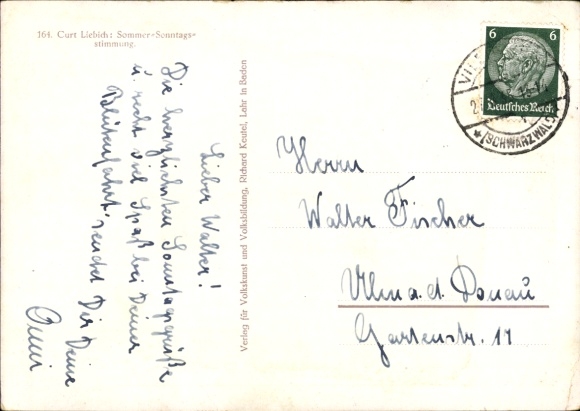 164. Curt Liebich: Sommer-Sonntags-
stimmung.
Lieber Walter!
Die herzlichsten Sonntagsgrüße
u. recht viel Spaß bei Deiner
Blütenfahrt sendet Dir Deine
Verlag für Volkskunst und Volksbildung, Richard Keutel, Lahr in Baden
6 6
Deutsches Reich
(SCHWARZWALD)
Herrn
Walter Fischer
Ulm a. d. Donau
Gartenstr. 11